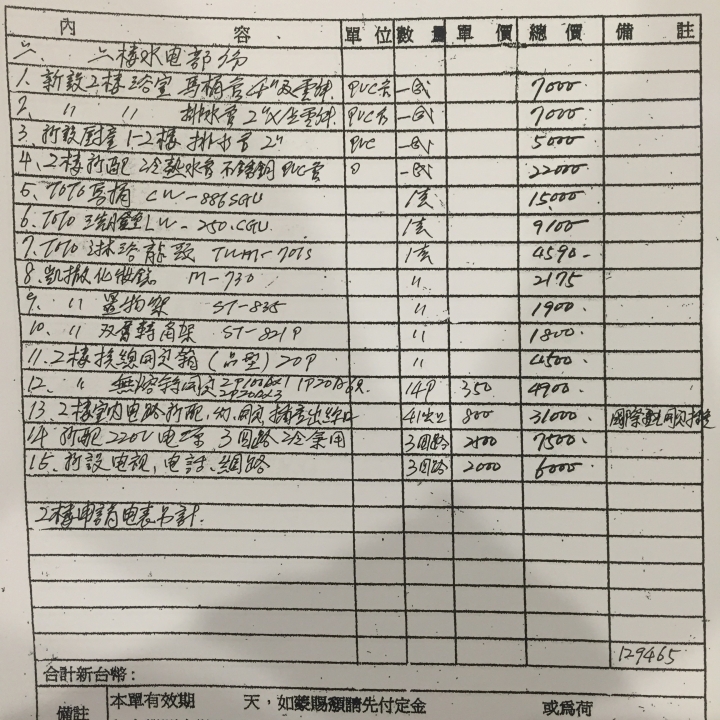 內 容 單位 數量 單價 總價 備註
六、 二樓水电部份
1. 新設2樓浴室馬桶管4" PVC 一式 7000
2. 〃 〃 排水管2" PVC 一式 7000
3. 新設廚 1-2樓排水管2" PVC 一式 5000
4. 2樓新配冷熱水管不銹鋼PVC管 一式 22000
5. TOTO馬桶 CW-886SGU 1套 15000
6. TOTO LW-250.CGU 1套 9100
7. TOTO 浴龍頭 TUM-701S 1套 4590
8. 凱撒化妝鏡 M-730 〃 2175
9. 〃 置物架 ST-835 〃 1900
10. 〃 双層轉角架 ST-821P 〃 1800
11. 2樓 總開関箱 (品型) 20P 〃 4500
12. 〃 無熔絲開関 2P100A×1 2P20A×3 14P 350 4900
13. 2樓室內电路新配 插座出線口 41出口 800 31000 國際
14. 新配220V电源 3回路 冷氣用 3回路 2500 7500
15. 新設电視、电話、網路 3回路 2000 6000
2樓申請电表另計.
129465
合計新台幣：
備註 本單有效期 天，如蒙賜顧請先付定金 或為荷